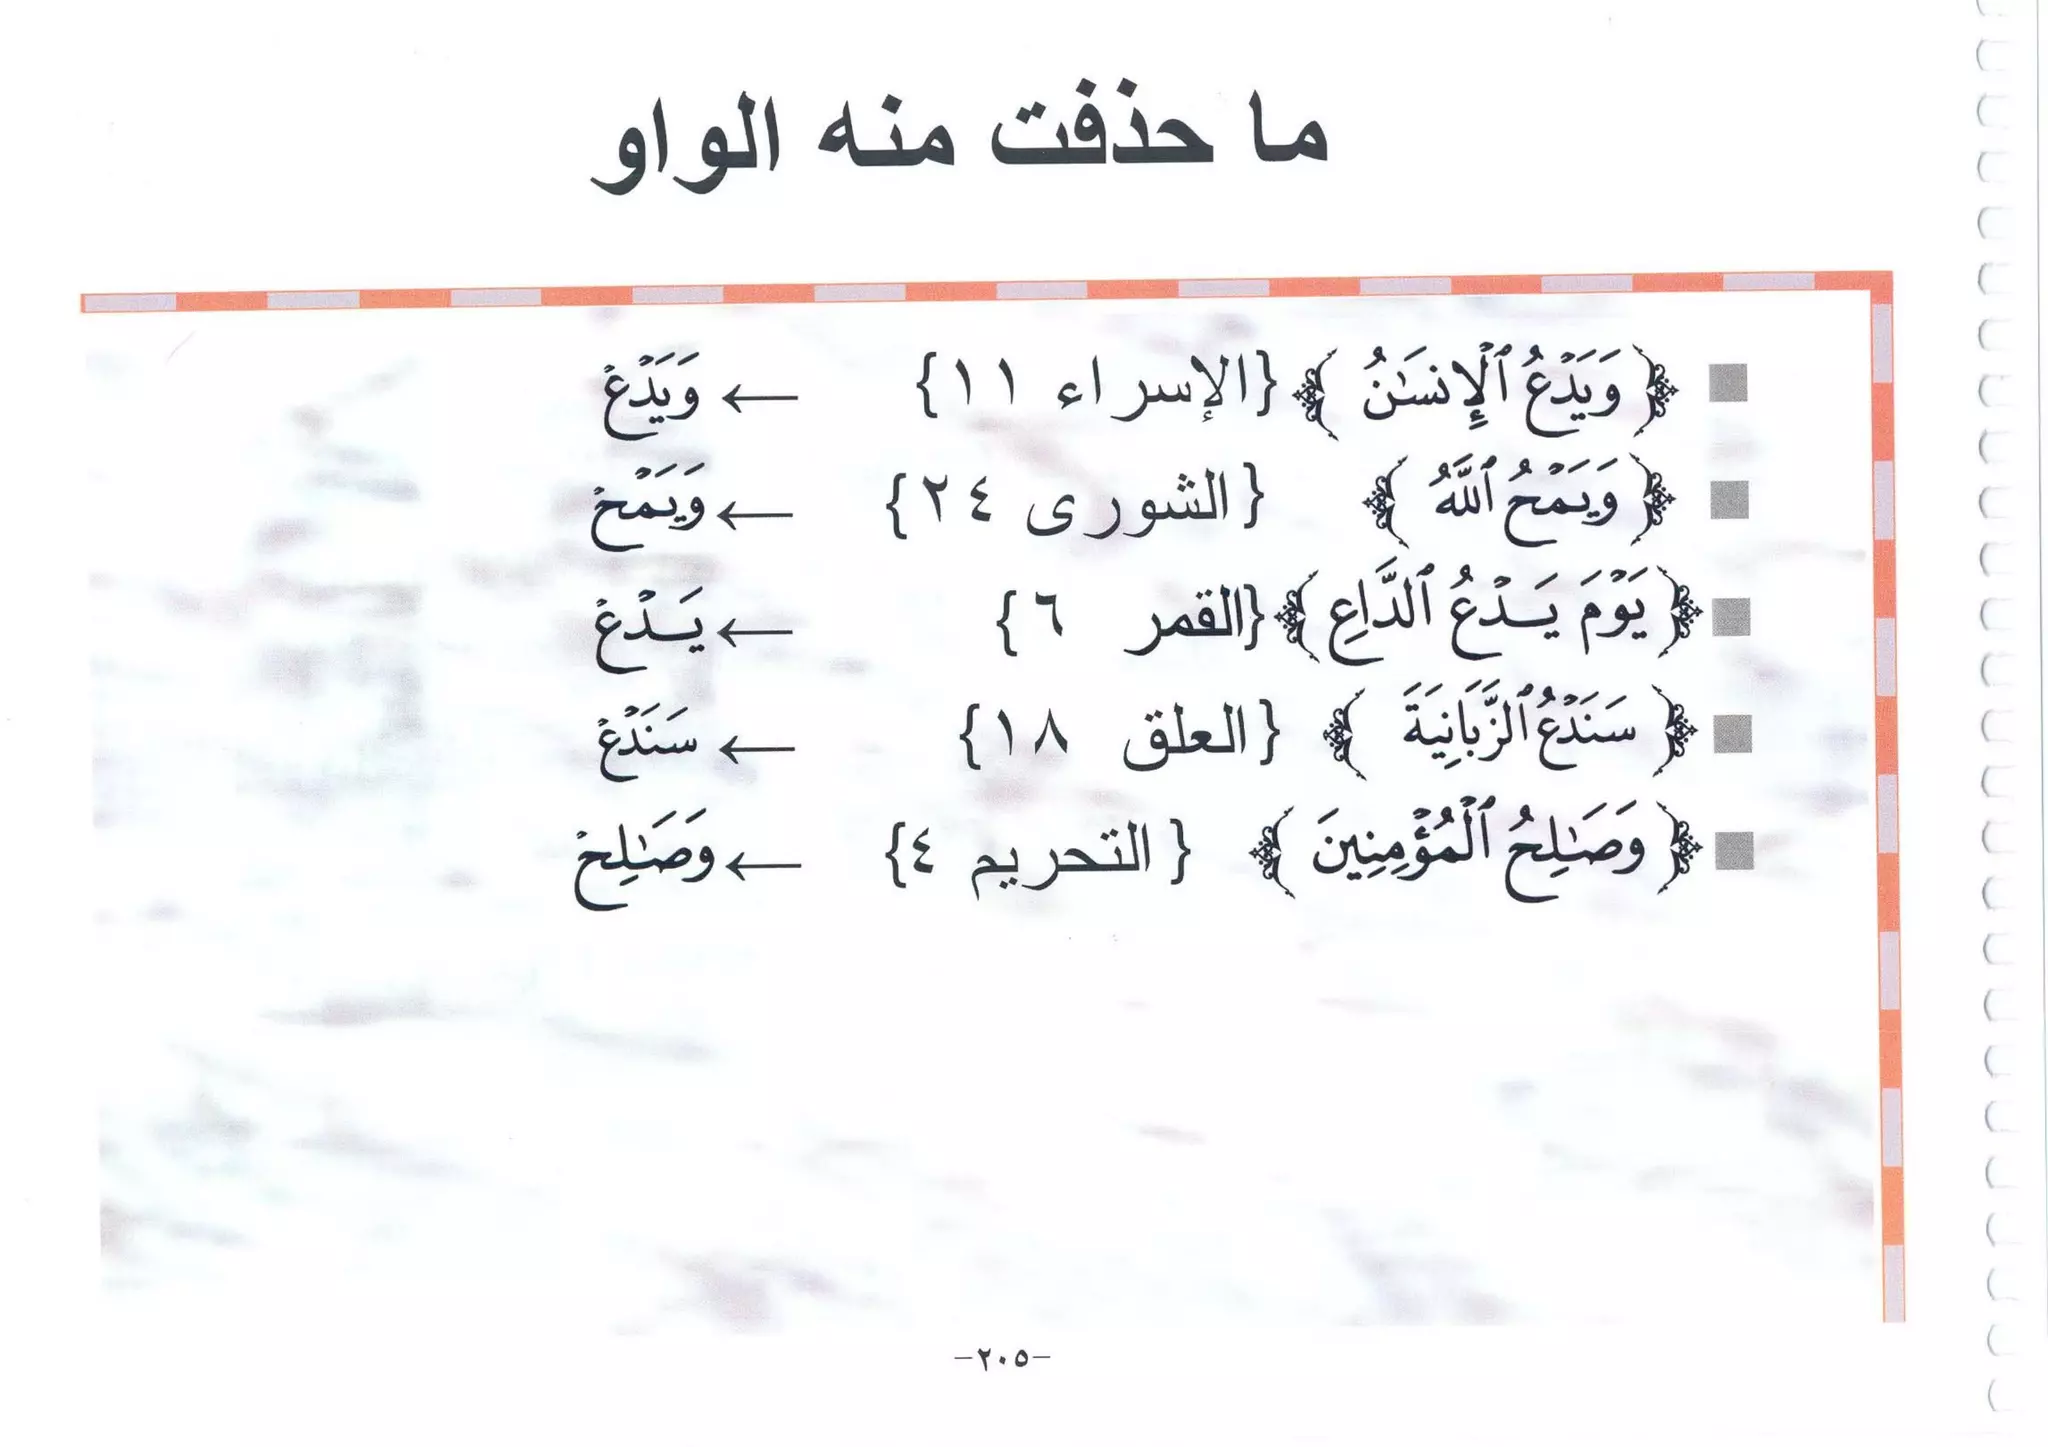 ما حذفت منه الواو
﴿ وَيَدْعُ ٱلْإِنسَـٰنُ ﴾ {الإسراء ١١} ← وَيَدْعْ
﴿ وَيَمْحُ ٱللَّهُ ﴾ {الشورى ٢٤} ← وَيَمْحْ
﴿ يَوْمَ يَـدْعُ ٱلدَّاعِ ﴾ {القمر ٦} ← يَـدْعْ
﴿ سَنَدْعُ ٱلزَّبَانِيَةَ ﴾ {العلق ١٨} ← سَنَدْعْ
﴿ وَصَـٰلِحُ ٱلْمُؤْمِنِينَ ﴾ { التحريم ٤} ← وَصَـٰلِحْ
-٢٠٥-